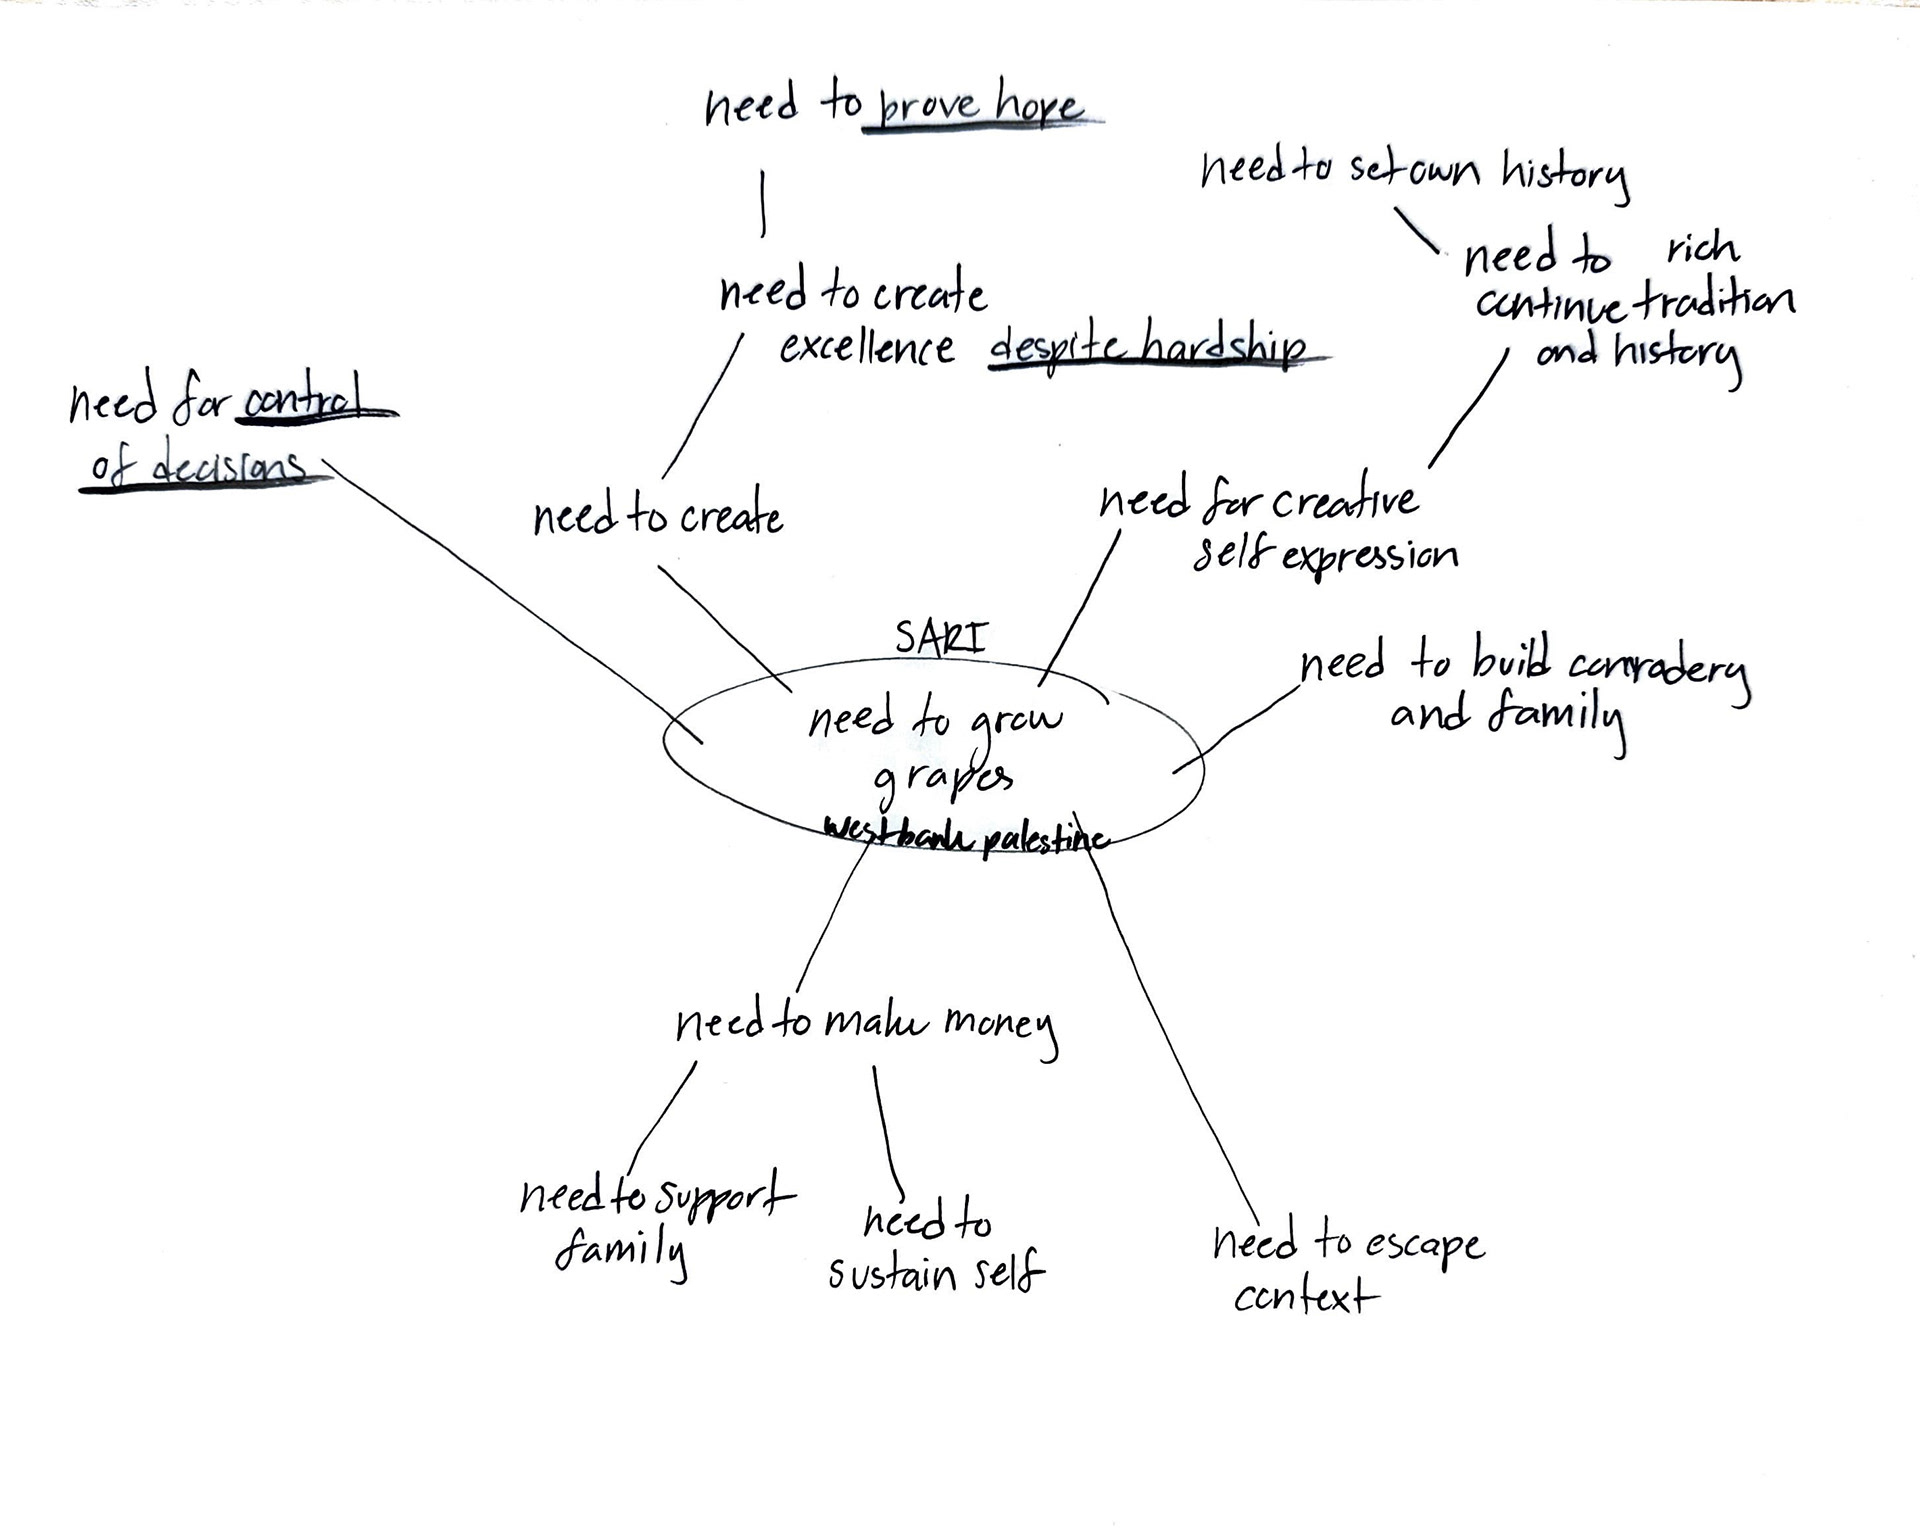 need to prove hope
need to set own history
need to rich
continue tradition
and history
need to create
excellence despite hardship
need for control
of decisions
need to create
need for creative
self expression
SARI
need to grow
grapes
westbank palestine
need to build comradery
and family
need to make money
need to support
family
need to
sustain self
need to escape
context